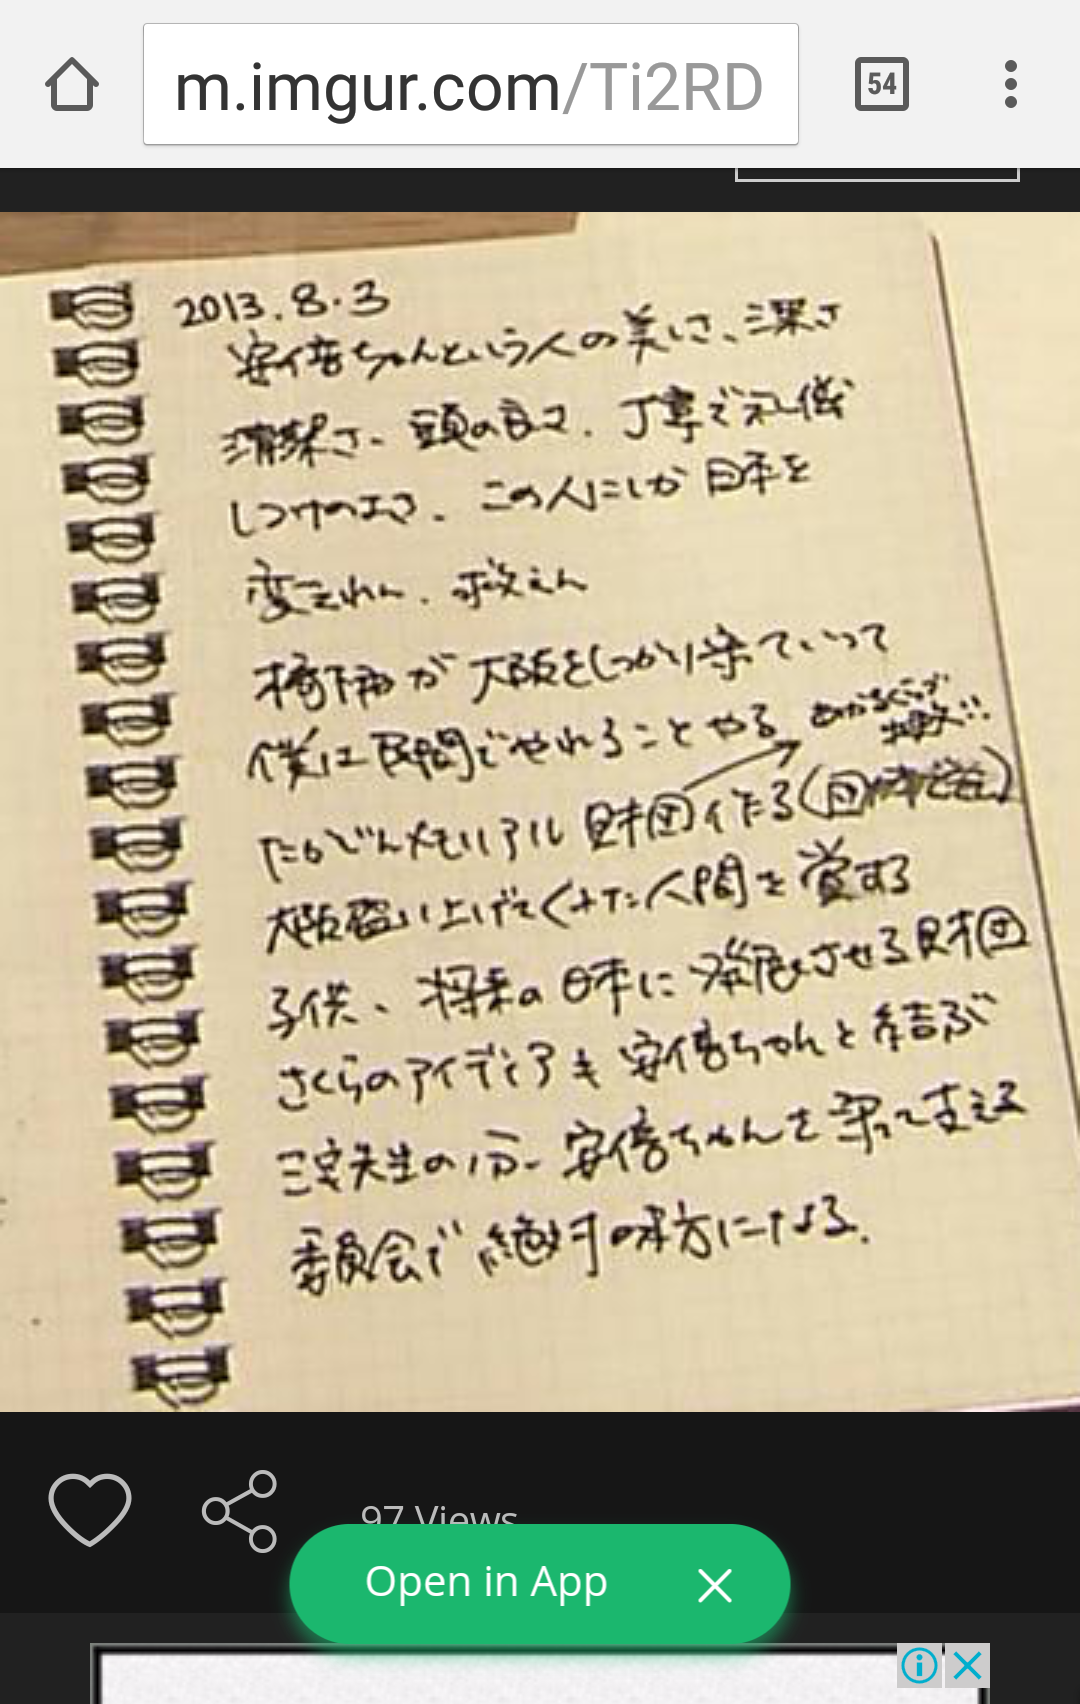 m.imgur.com/Ti2RD
54
2013.8.3
安倍ちゃんという人の美しさ、深さ
清潔さ、頭の良さ、丁寧で礼儀
しつけの上さ、この人にしか日本を
変えれん、救えん
橋下 が大阪をしっかり栄ていって
僕は民間でやれることやる
たかじんメモリアル 財団作る(
大阪盛り上げてくれた人間を賞する
子供、将来の日本に発展させる財団
さくらのアイデアも安倍ちゃんと結ぶ
三宅先生の 安倍ちゃんを 支える
委員会で絶対味方になる.
97 Views
Open in App